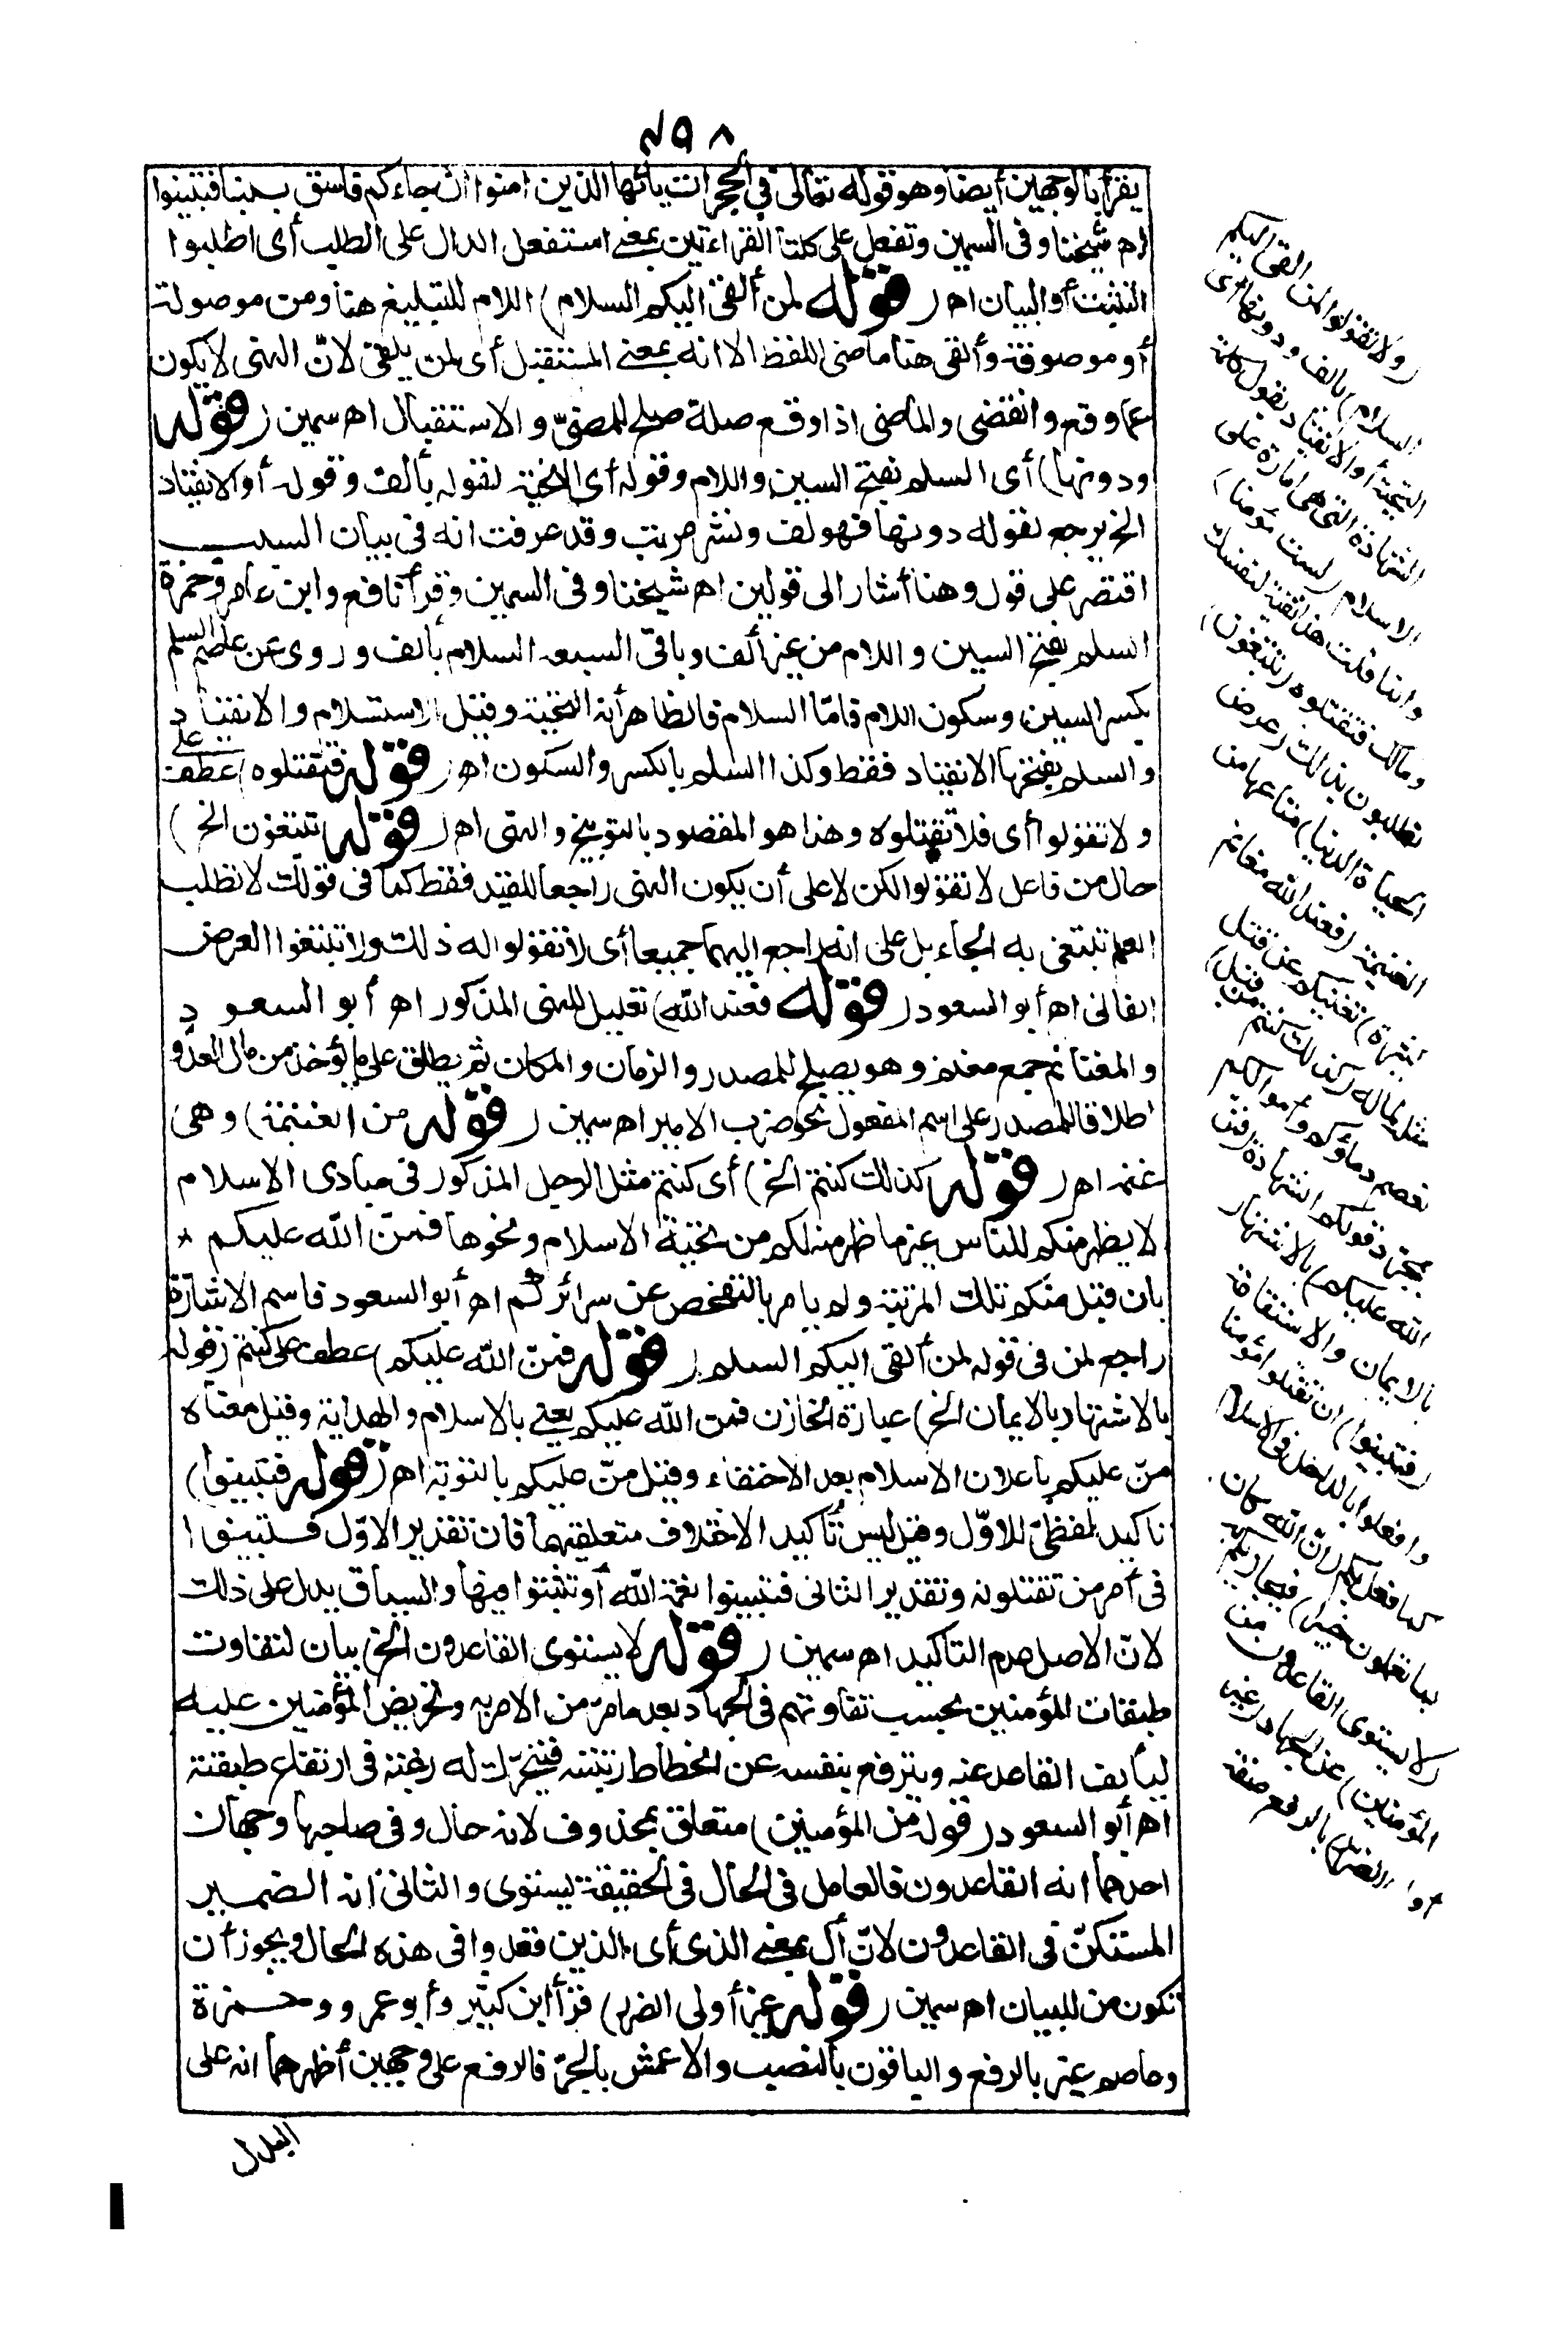 ٤٥٨
يقرأ بالوجهين أيضا وهو قوله تعالى في الحجرات يأيها الذين امنوا ان جاءكم فاسق بنبا فتبينوا
اهـ شيخنا وفى السمين وتفعل على كلتا القراءتين بمعنى استفعل الدال على الطلب أى اطلبوا
التثبت أو البيان اهـ (قوله لمن ألقى اليكم السلام) اللام للتبليغ هنا ومن موصولة
أو موصوفة وألقى هنا ماضى اللفظ الا انه بمعنى المستقبل أى لمن يلقى لانّ النهى لا يكون
عما وقع وانقضى والماضى اذا وقع صلة صلح للمضىّ والاستقبال اهـ سمين (قوله
ودونها) أى السلم بفتح السين واللام وقوله أى التحية لقوله بألف وقوله أو الانقياد
الخ يرجع لقوله دونها فهو لف ونشر مرتب وقد عرفت انه فى بيان السبب
اقتصر على قول وهنا أشار الى قولين اهـ شيخنا وفى السمين وقرأ نافع وابن عامر وحمزة
السلم بفتح السين واللام من غير ألف وباقى السبعة السلام بألف وروى عن عاصم السلم
بكسر السين وسكون اللام فامّا السلام فالظاهر أنه التحية وقيل الاستسلام والانقياد
والسلم بفتحها الانقياد فقط وكذا السلم بالكسر والسكون اهـ (قوله فتقتلوه) عطف على
ولا تقولوا أى فلا تقتلوه وهذا هو المقصود بالتوبيخ والنهى اهـ (قوله تبتغون الخ)
حال من فاعل لا تقولوا لكن لا على أن يكون النهى راجعا للقيد فقط كما فى قولك لا تطلب
العلم تبتغى به الجاه بل على انه راجع اليهما جميعا أى لا تقولوا له ذلك ولا تبتغوا العرض
الفانى اهـ أبو السعود (قوله فعند الله) تعليل للنهى المذكور اهـ أبو السعود
والمغانم جمع مغنم وهو يصلح للمصدر والزمان والمكان ثم يطلق على ما يؤخذ من مال العدو
اطلاقا للمصدر على اسم المفعول نحو ضرب الامير اهـ سمين (قوله من الغنيمة) وهى
غنمه اهـ (قوله كذلك كنتم الخ) أى كنتم مثل الرجل المذكور فى مبادى الاسلام
لا يظهر منكم للناس غير ما ظهر منه لكم من تحية الاسلام ونحوها فمنّ الله عليكم *
بان قبل منكم تلك المرتبة ولم يامر بالتفحص عن سرائركم اهـ أبو السعود فاسم الاشارة
راجع لمن فى قوله لمن ألقى اليكم السلم (قوله فمنّ الله عليكم) عطف على كنتم (قوله
بالاشتهار بالايمان الخ) عبارة الخازن فمن الله عليكم يعنى بالاسلام والهداية وقيل معناه
منّ عليكم باعلان الاسلام بعد الاختفاء وقيل منّ عليكم بالتوبة اهـ (قوله فتبينوا)
تأكيد لفظىّ للاوّل وقيل ليس تأكيد الاختلاف متعلقيهما فان تقدير الاوّل فتبينوا
فى أمر من تقتلونه وتقدير الثانى فتبينوا نعمة الله أو تثبتوا فيها والسياق يدل على ذلك
لانّ الاصل عدم التاكيد اهـ سمين (قوله لا يستوى القاعدون الخ) بيان لتفاوت
طبقات المؤمنين بحسب تفاوتهم فى الجهاد بعد ما مرّ من الامر به وتحريض المؤمنين عليه
ليأنف القاعد عنه ويترفع بنفسه عن انحطاط رتبته فيتحرّك له رغبته فى ارتفاع طبقته
اهـ أبو السعود (قوله من المؤمنين) متعلق بمحذوف لانه حال وفى صاحبها وجهان
احدهما انه القاعدون فالعامل فى الحال فى الحقيقة يستوى والثانى انه الضمير
المستكنّ فى القاعدون لانّ أل بمعنى الذى أى الذين قعدوا فى هذه الحال ويجوز أن
تكون من للبيان اهـ سمين (قوله غير أولى الضرر) قرأ ابن كثير وأبو عمرو وحمزة
وعاصم غير بالرفع والباقون بالنصب والاعمش بالجرّ فالرفع على وجهين أظهرهما انه على
البدل
(ولا تقولوا لمن القى اليكم
السلام) بالف ودونها أى
التحية أو الانقياد بقول كلمة
الشهادة التى هى امارة على
الاسلام (لست مؤمنا)
وانما قلت هذا تقية لنفسك
ومالك فتقتلوه (تبتغون)
تطلبون بذلك (عرض
الحياة الدنيا) متاعها من
الغنيمة (فعند الله مغانم
كثيرة) تغنيكم عن قتل
مثله لماله (كذلك كنتم من قبل)
تعصم دماؤكم وأموالكم
بمجرد قولكم الشهادة (فمن
الله عليكم) بالاشتهار
بالايمان والاستقامة
(فتبينوا) ان تقتلوا مؤمنا
وافعلوا بالداخل فى الاسلام
كما فعل بكم (انّ الله كان
بما تعملون خبيرا) فيجازيكم به
(لا يستوى القاعدون من
المؤمنين) عن الجهاد (غير
أولى الضرر) بالرفع صفة